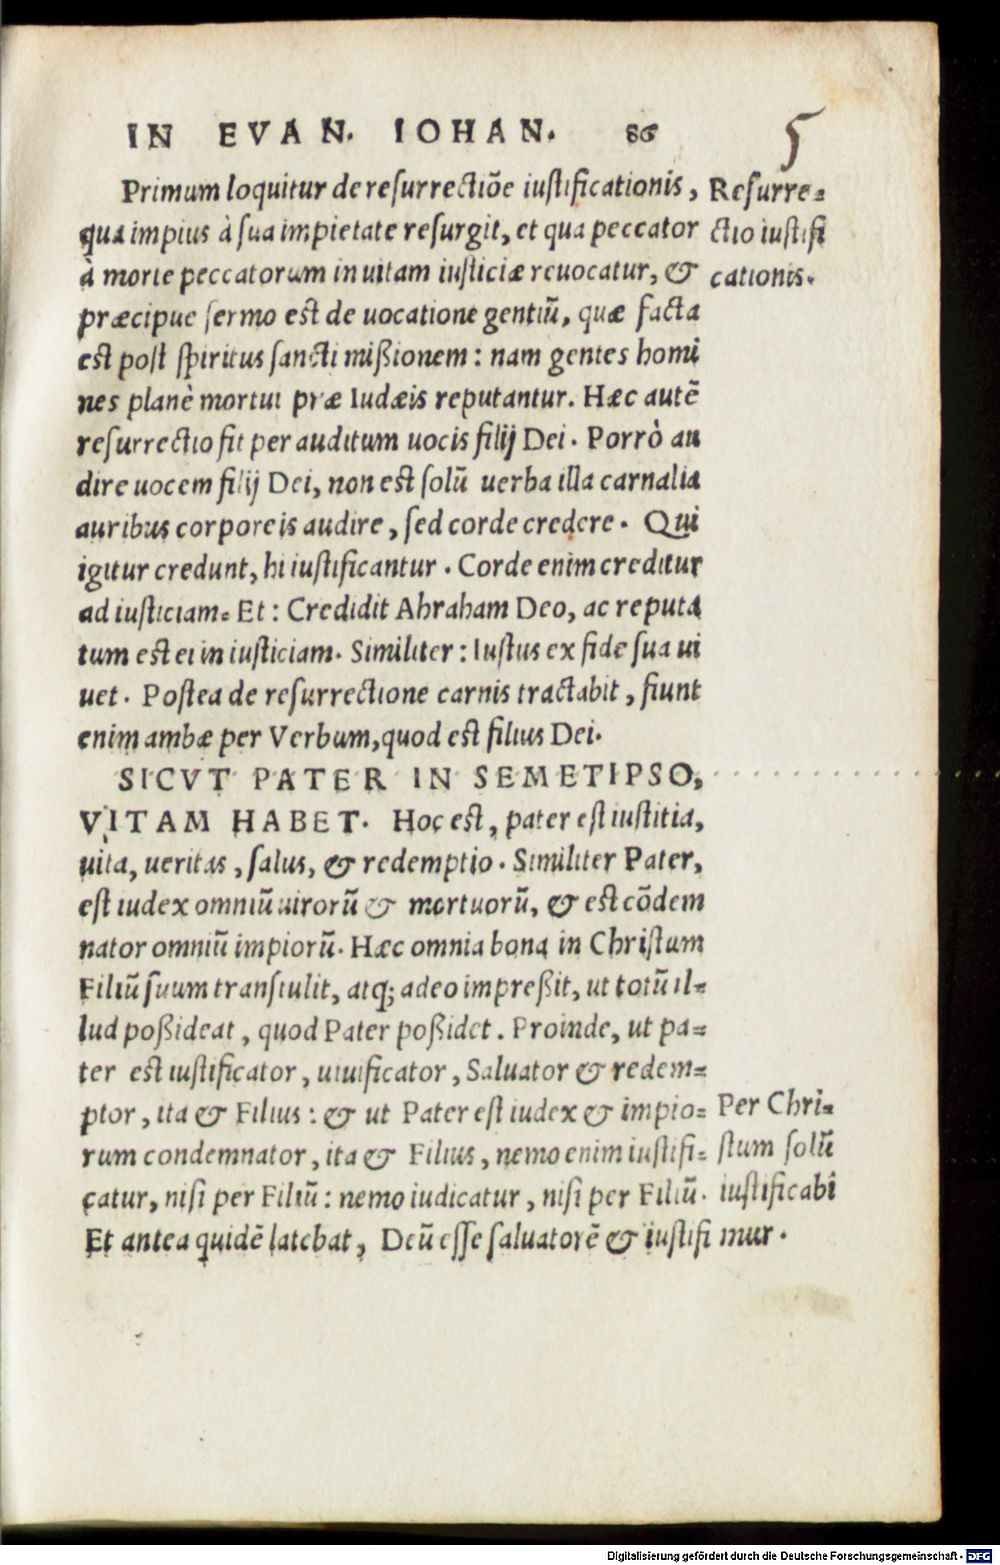 IN EVAN. IOHAN. 86
5
Primum loquitur de resurrectiōe iustificationis,
qua impius à sua impietate resurgit, et qua peccator
à morte peccatorum in uitam iusticiæ reuocatur, &
præcipue sermo est de uocatione gentiū, quæ facta
est post spiritus sancti mißionem: nam gentes homi
nes planè mortui præ Iudæis reputantur. Hæc autē
resurrectio fit per auditum uocis filij Dei. Porrò au
dire uocem filij Dei, non est solū uerba illa carnalia
auribus corporeis audire, sed corde credere. Qui
igitur credunt, hi iustificantur. Corde enim creditur
ad iusticiam. Et: Credidit Abraham Deo, ac reputa
tum est ei in iusticiam. Similiter: Iustus ex fide sua ui
uet. Postea de resurrectione carnis tractabit, fiunt
enim ambæ per Verbum, quod est filius Dei.
SICVT PATER IN SEMETIPSO,
VITAM HABET. Hoc est, pater est iustitia,
uita, ueritas, salus, & redemptio. Similiter Pater,
est iudex omniū uiuorū & mortuorū, & est cōdem
nator omniū impiorū. Hæc omnia bona in Christum
Filiū suum transtulit, atq; adeo impreßit, ut totū il-
lud poßideat, quod Pater poßidet. Proinde, ut pa-
ter est iustificator, uiuificator, Saluator & redem-
ptor, ita & Filius: & ut Pater est iudex & impio-
rum condemnator, ita & Filius, nemo enim iustifi-
catur, nisi per Filiū: nemo iudicatur, nisi per Filiū.
Et antea quidē latebat, Deū esse saluatorē & iustifi
Resurre-
ctio iustifi
cationis.
Per Chri-
stum solū
iustificabi
mur.
Digitalisierung gefördert durch die Deutsche Forschungsgemeinschaft - DFG